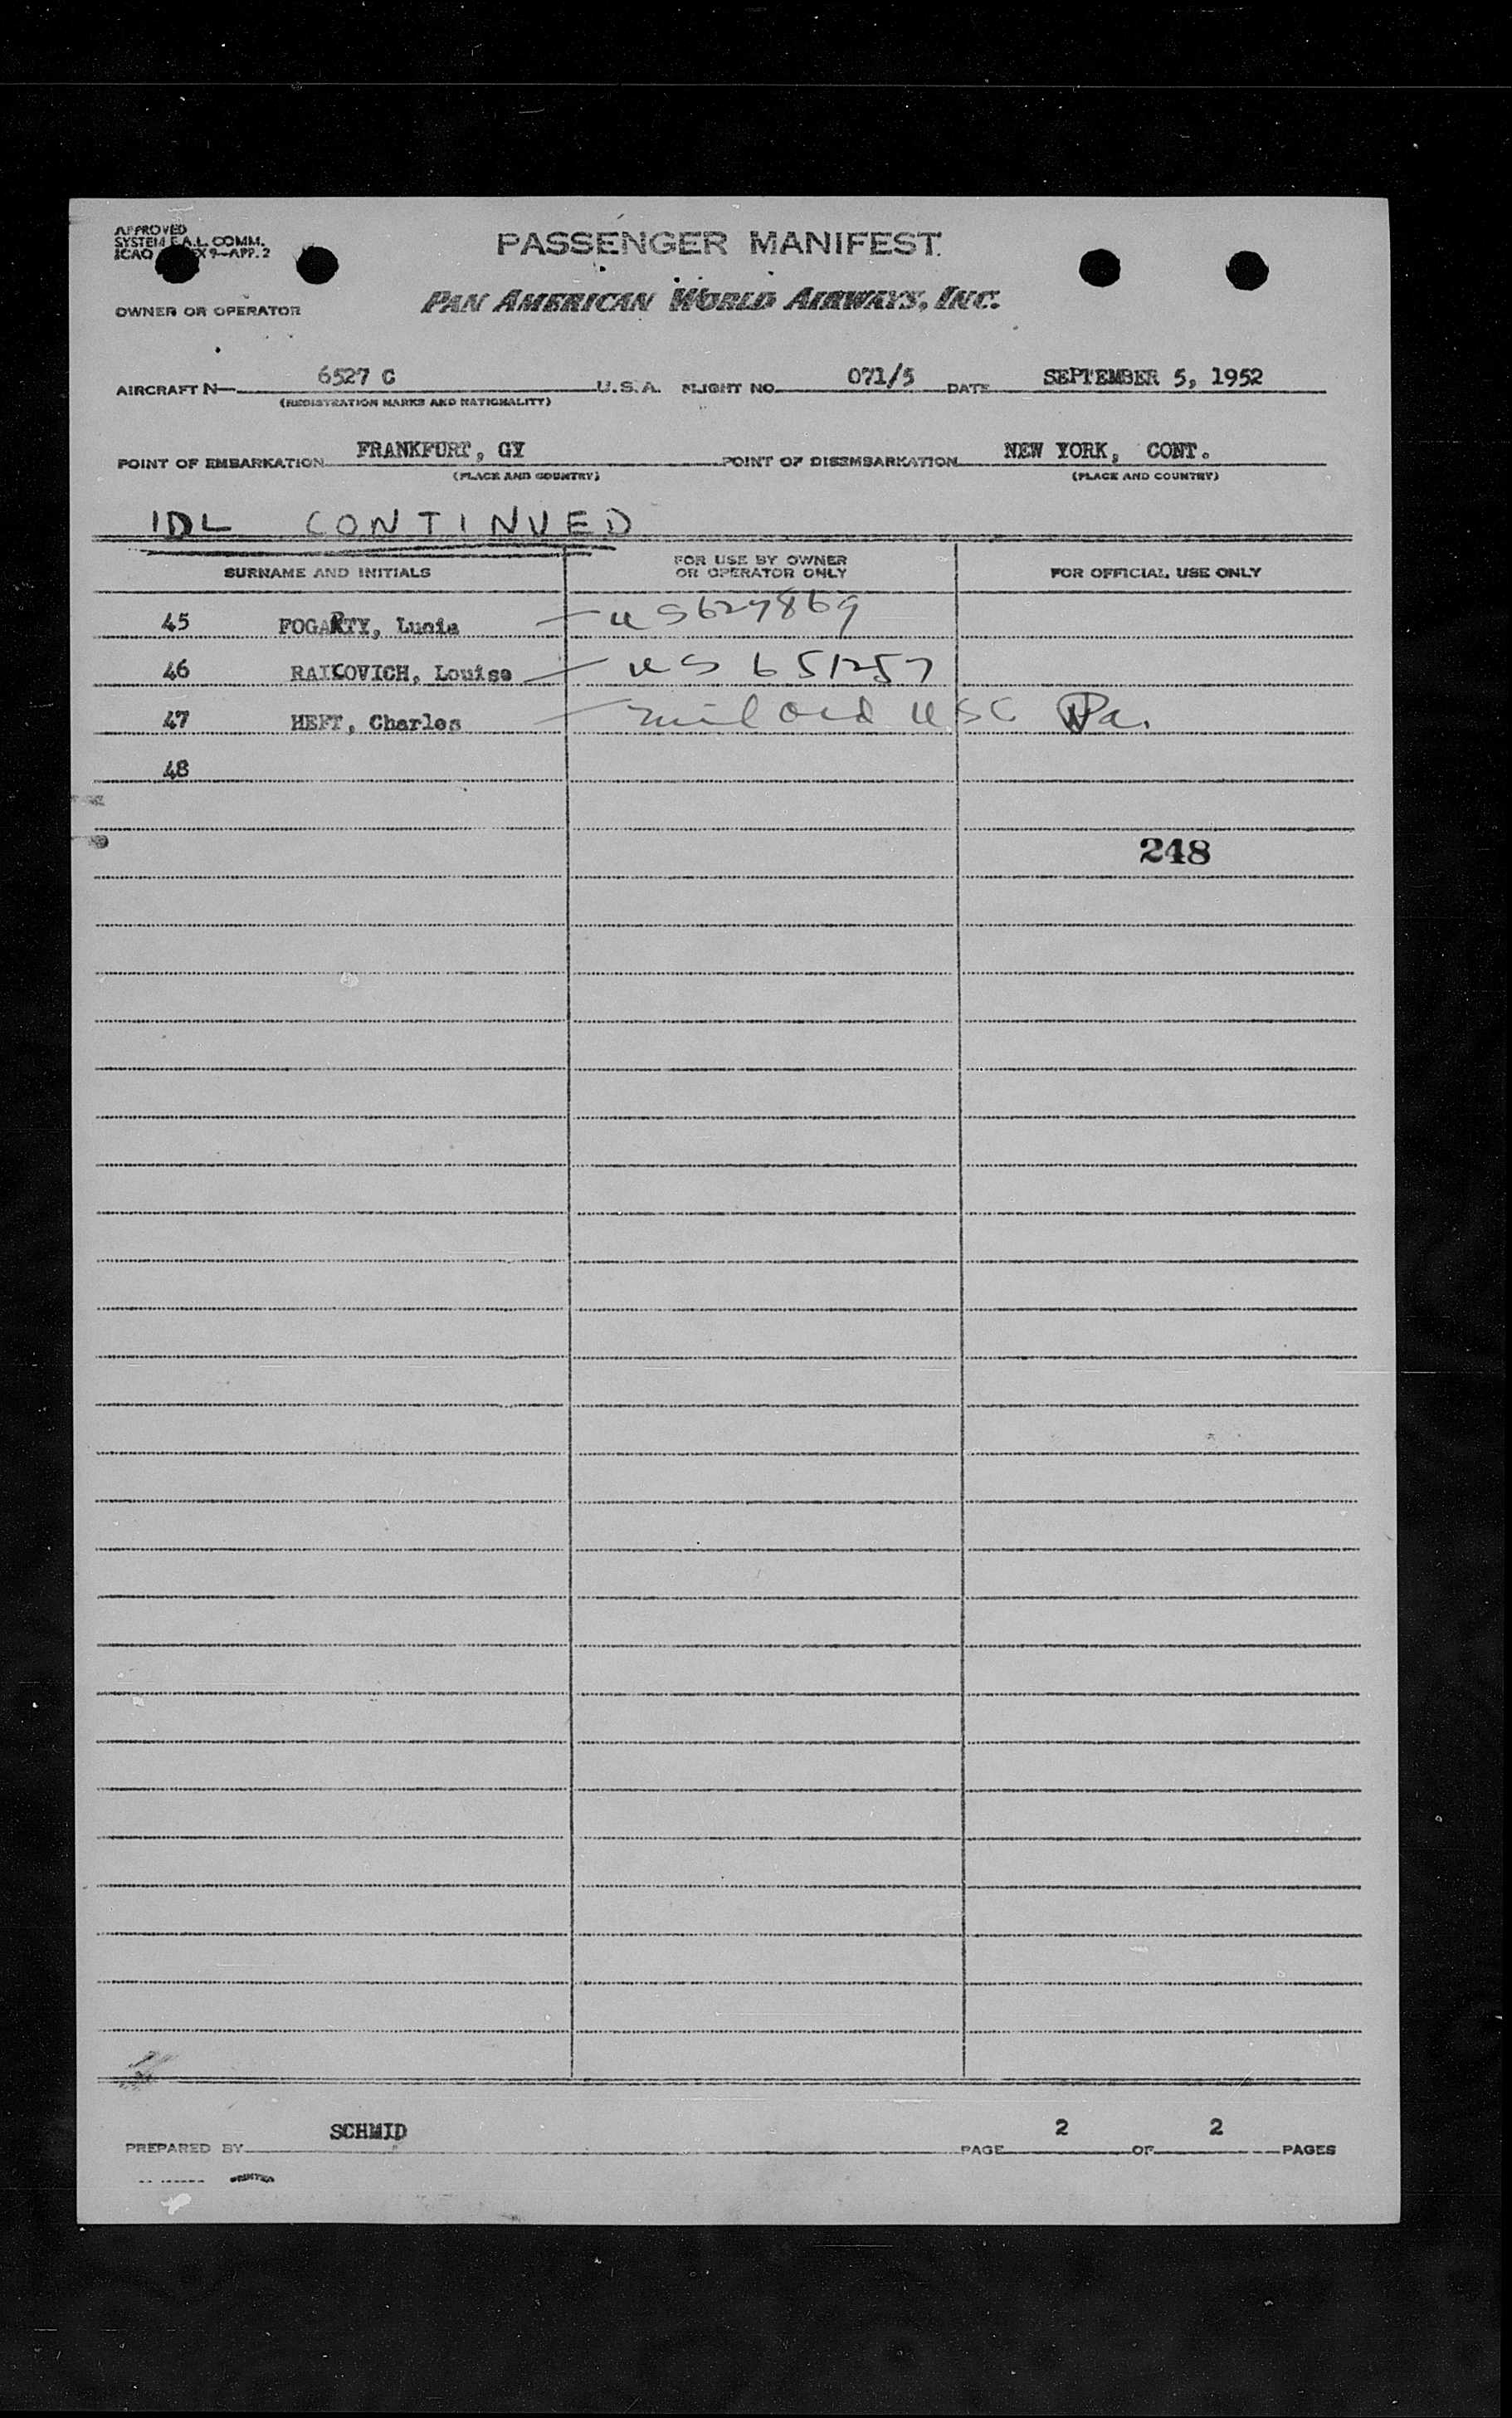 APPROVED
SYSTEM F.A.L. COMM.
ICAO X 9-APP. 2
PASSENGER MANIFEST
OWNER OR OPERATOR
PAN AMERICAN WORLD AIRWAYS, INC.
AIRCRAFT N— 6527 C U.S.A. FLIGHT NO. 071/5 DATE SEPTEMBER 5, 1952
(REGISTRATION MARKS AND NATIONALITY)
POINT OF EMBARKATION FRANKFURT, GY POINT OF DISEMBARKATION NEW YORK, CONT.
(PLACE AND COUNTRY) (PLACE AND COUNTRY)
IDL CONTINUED
SURNAME AND INITIALS FOR USE BY OWNER OR OPERATOR ONLY FOR OFFICIAL USE ONLY
45 FOGARTY, Lucia — US627869
46 RAICOVICH, Louise — US 651257
47 HEFT, Charles — mil Ord USC Pa.
48
248
PREPARED BY SCHMID PAGE 2 OF 2 PAGES
PRINTED